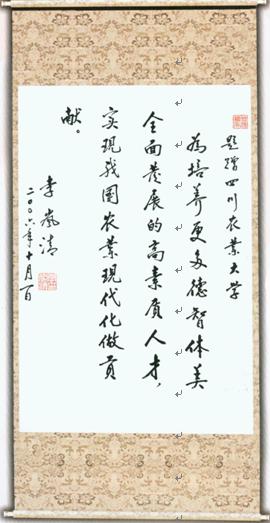 题赠四川农業大学
为培养更多德智体美
全面发展的高素质人才，
实现我国农業现代化做贡
献。
李岚清
二〇〇六年十月一日